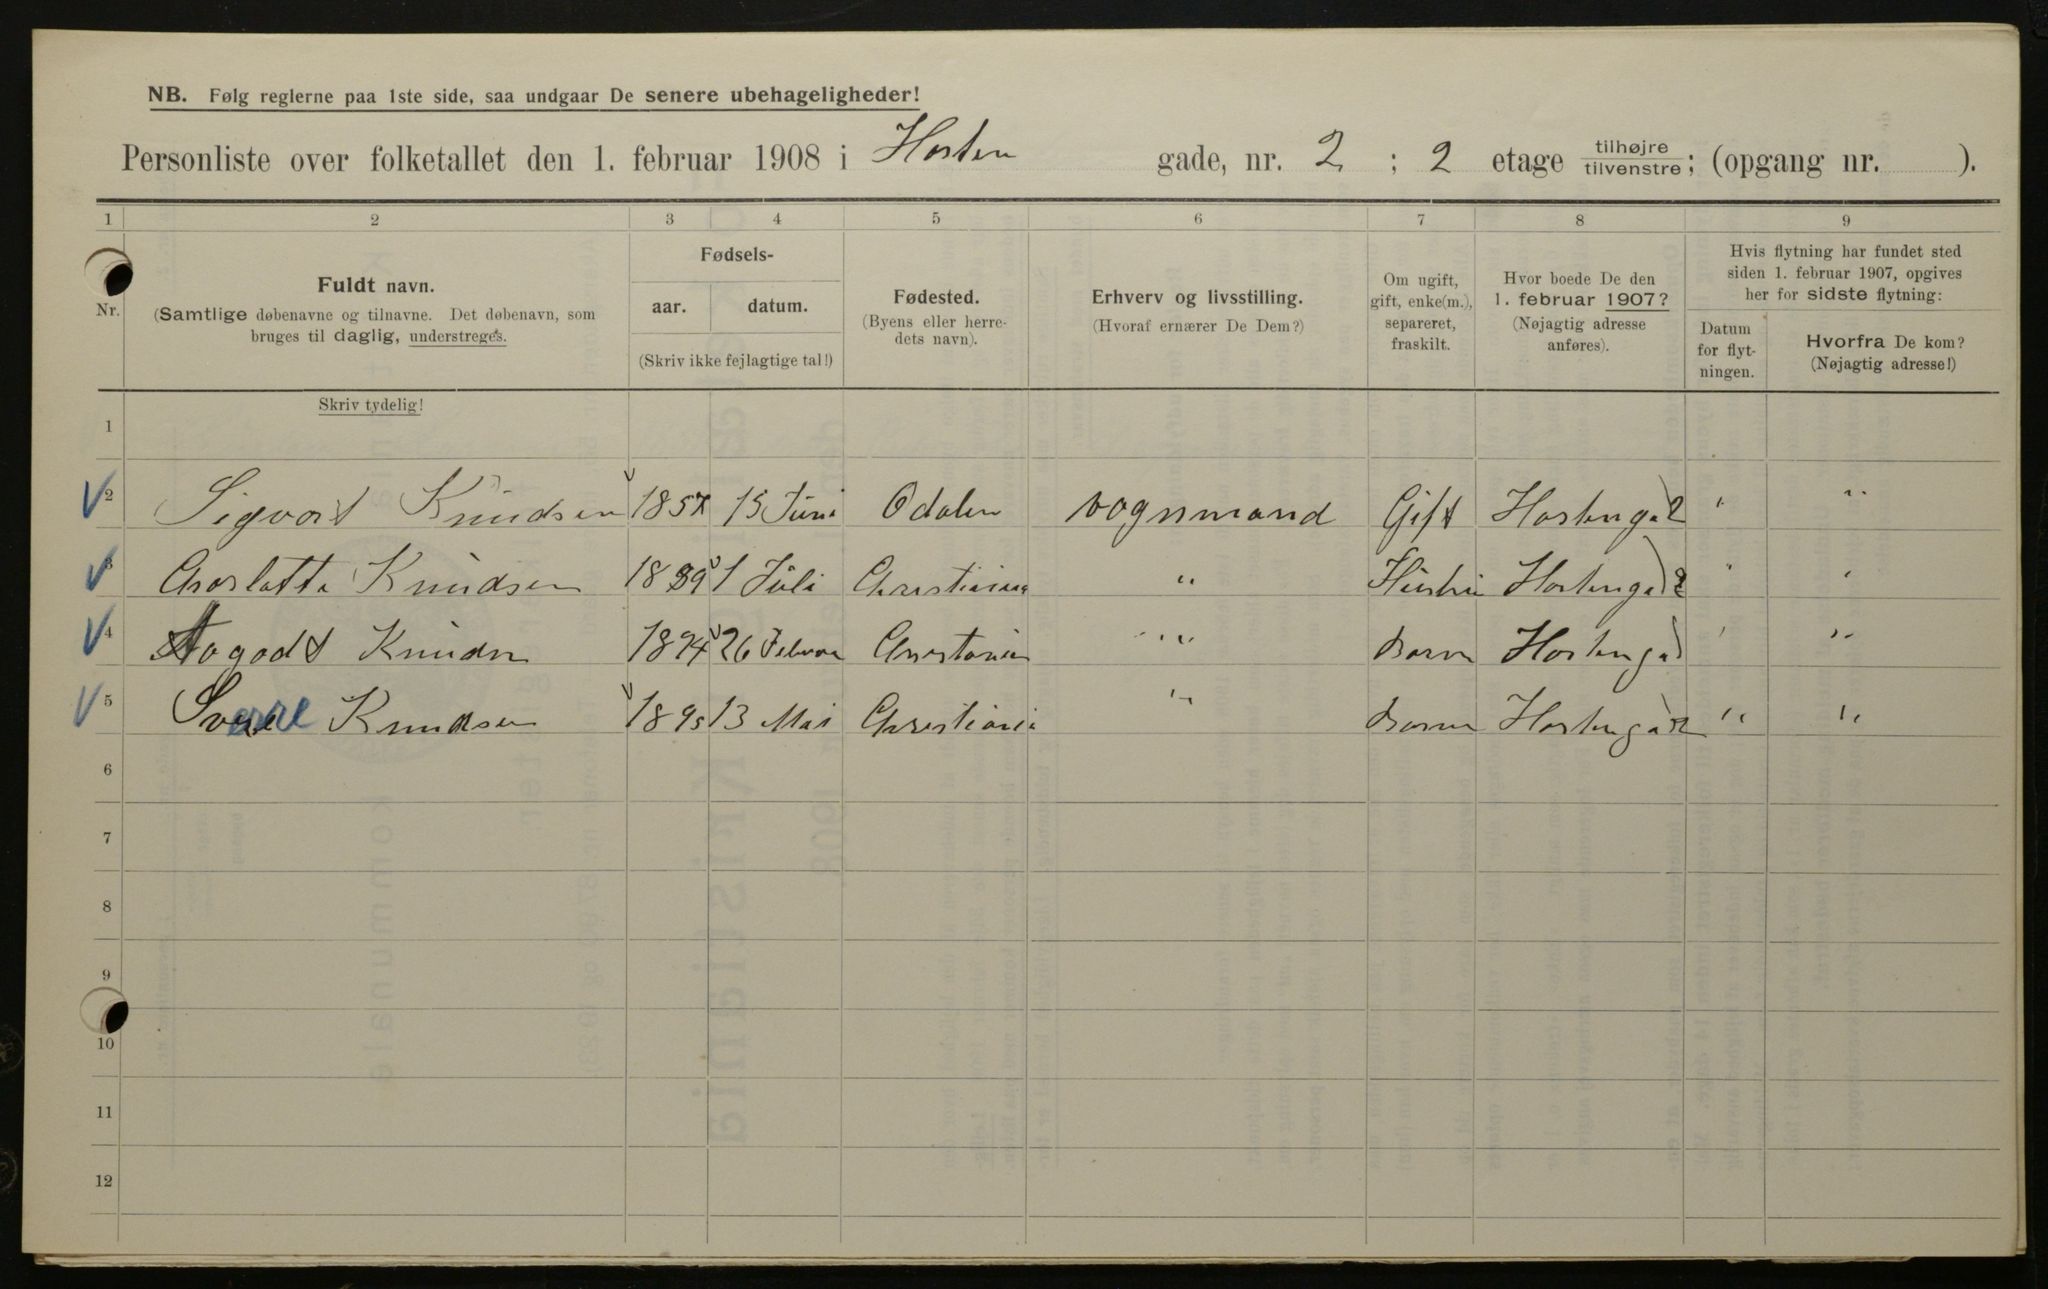 NB. Følg reglerne paa 1ste side, saa undgaar De senere ubehageligheder!
Personliste over folketallet den 1. februar 1908 i Horten gade, nr. 2 ; 2 etage tilhøjre tilvenstre; (opgang nr. ).
1 2 3 4 5 6 7 8 9
Nr.
Fuldt navn.
(Samtlige døbenavne og tilnavne. Det døbenavn, som
bruges til daglig, understreges.
Skriv tydelig!
Fødsels-
aar. datum.
(Skriv ikke fejlagtige tal!)
Fødested.
(Byens eller herre-
dets navn).
Erhverv og livsstilling.
(Hvoraf ernærer De Dem?)
Om ugift,
gift, enke(m.),
separeret,
fraskilt.
Hvor boede De den
1. februar 1907?
(Nøjagtig adresse
anføres).
Hvis flytning har fundet sted
siden 1. februar 1907, opgives
her for sidste flytning:
Datum
for flyt-
ningen.
Hvorfra De kom?
(Nøjagtig adresse!)
1
2 Sigvart Knudsen 1857 15 Juni Odalen vognmand Gift Hortenga 2 " "
3 Charlotta Knudsen 1 Juli Christiania " Hustru Hortenga 2 " "
4 Knudsn 1894 26 Februa Christania " Barn Hortenga " "
5 Sverre Knudsen 1895 13 Mai Christiania " Barn Hortenga 2 " "
6
7
8
9
10
11
12